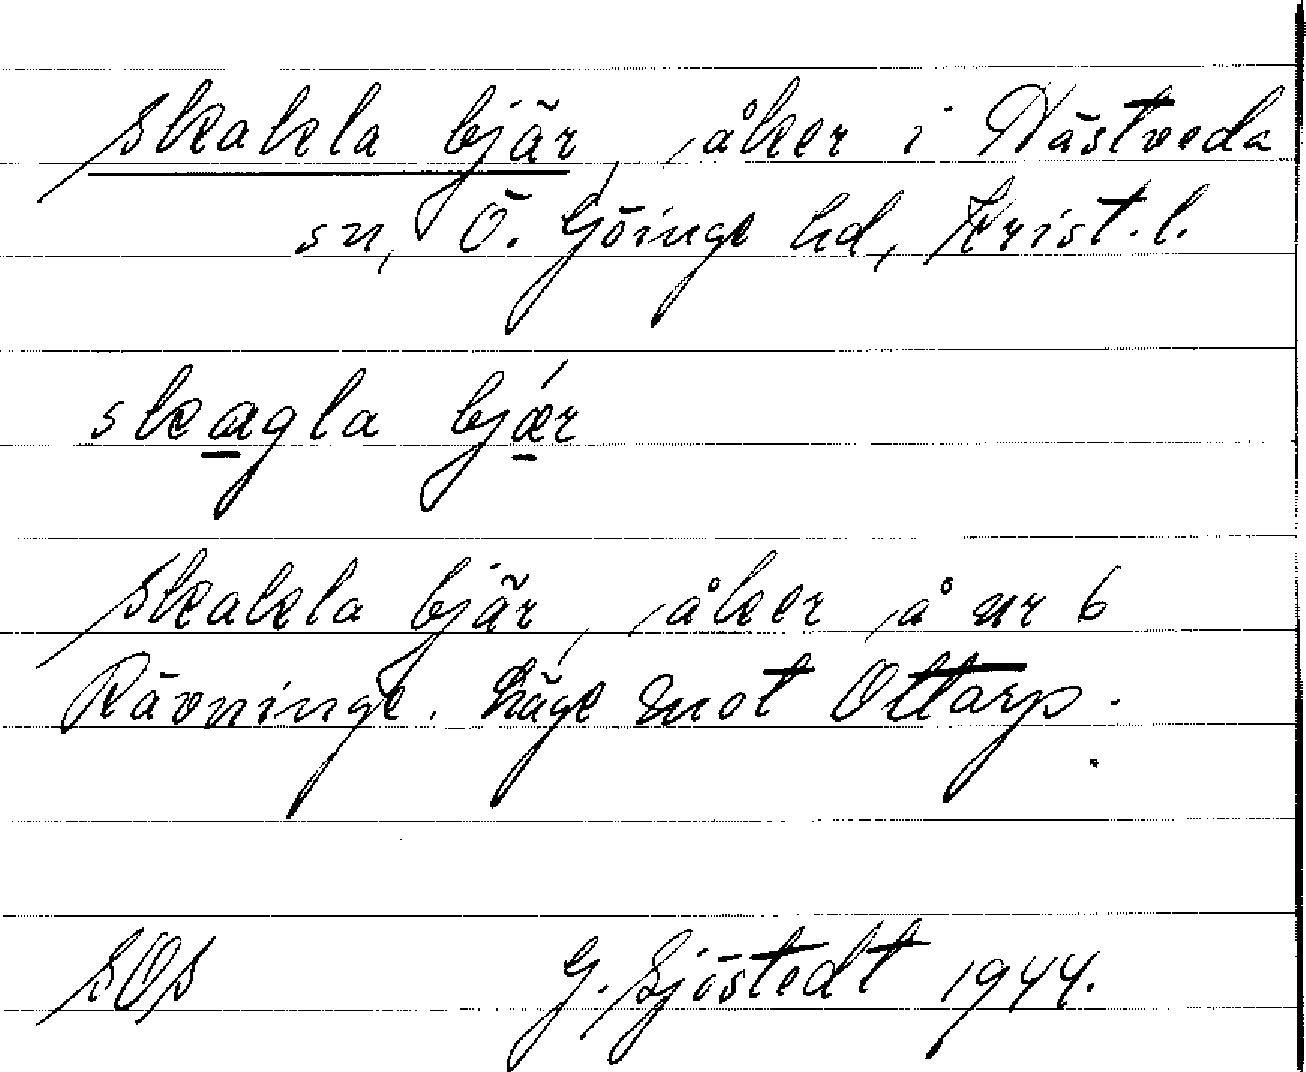 Skakla bjär, åker i Nästveda
sn, Ö. Göinge hd, Krist. l.
skagla bjǽr
Skakla bjär, åker å nr 6
Rävninge. Läge mot Ottarp.
SOS G. Sjöstedt 1944.